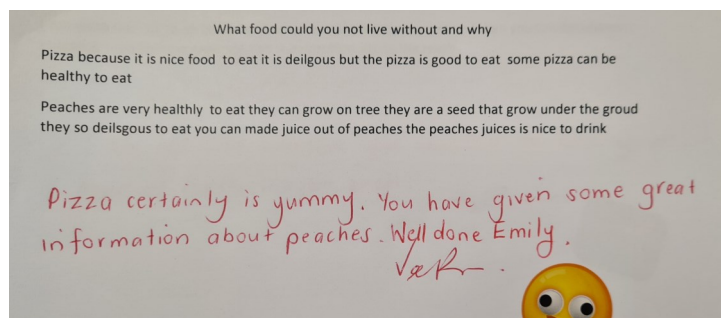 What food could you not live without and why
Pizza because it is nice food to eat it is deilgous but the pizza is good to eat some pizza can be
healthy to eat
Peaches are very healthly to eat they can grow on tree they are a seed that grow under the groud
they so deilsgous to eat you can made juice out of peaches the peaches juices is nice to drink
Pizza certainly is yummy. You have given some great
information about peaches. Well done Emily.